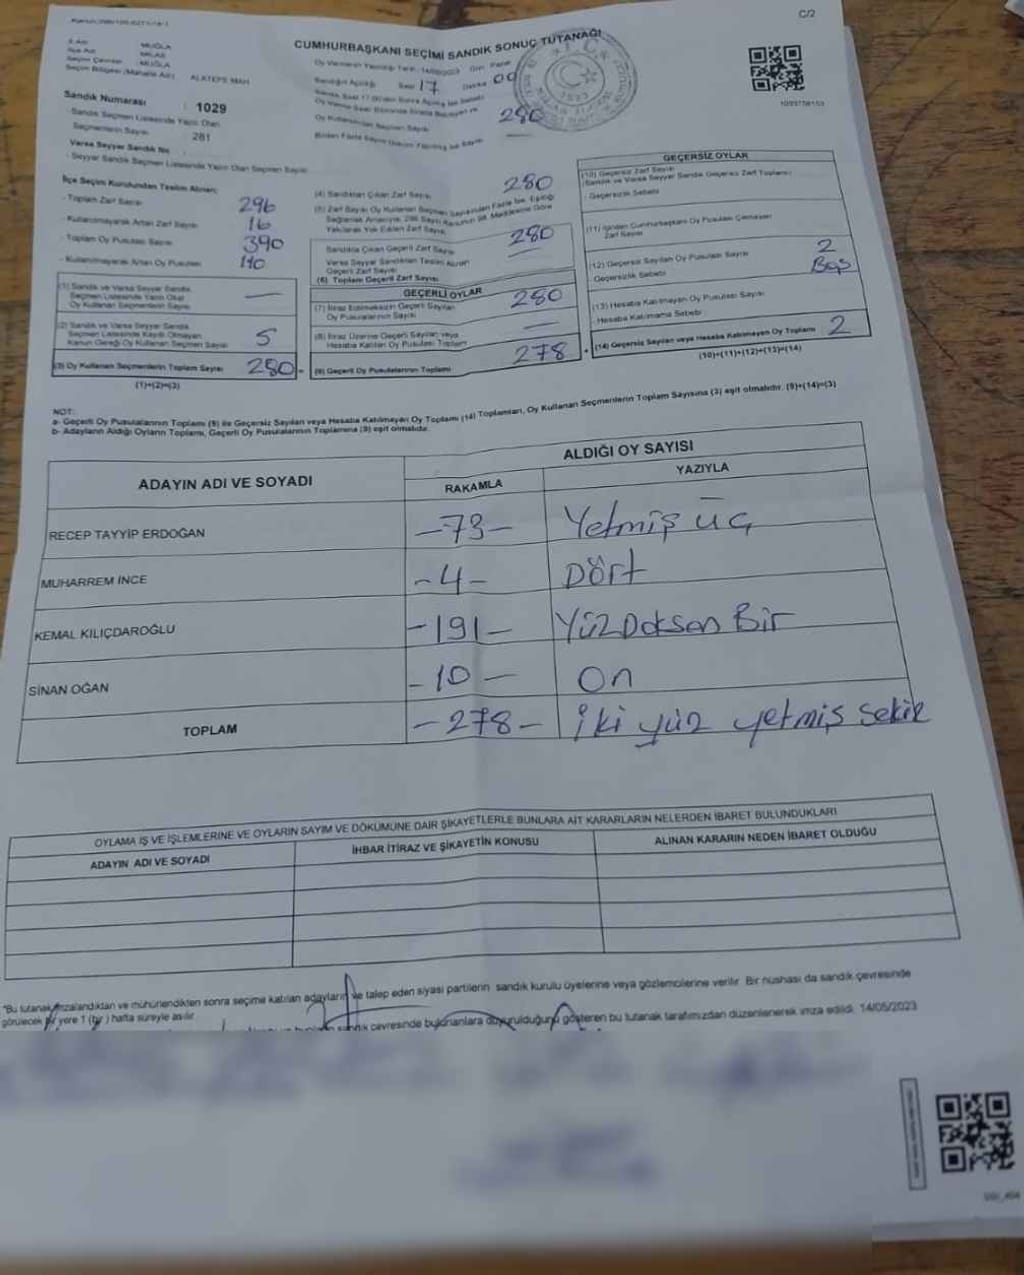 C/2
CUMHURBAŞKANI SEÇİMİ SANDIK SONUÇ TUTANAĞI
MUĞLA
MİLAS
MUĞLA
Seçim Bölgesi (Mahalle Adı) ALATEPE MAH
Saat 17 Dakika 00
Sandık Numarası : 1029
- Sandık Seçmen Listesinde Yazılı Olan
Seçmenlerin Sayısı 281
280
Varsa Seyyar Sandık No
- Seyyar Sandık Seçmen Listesinde Yazılı Olan Seçmen Sayısı
İlçe Seçim Kurulundan Teslim Alınan;
- Toplam Zarf Sayısı 296
- Kullanılmayarak Artan Zarf Sayısı 16
- Toplam Oy Pusulası Sayısı 390
- Kullanılmayarak Artan Oy Pusulası 110
(1) Sandık ve Varsa Seyyar Sandık
Seçmen Listesinde Yazılı Olup
Oy Kullanan Seçmenlerin Sayısı —
(2) Sandık ve Varsa Seyyar Sandık
Seçmen Listesinde Kayıtlı Olmayan
Kanun Gereği Oy Kullanan Seçmen Sayısı 5
(3) Oy Kullanan Seçmenlerin Toplam Sayısı 280
(1)+(2)=(3)
(4) Sandıktan Çıkan Zarf Sayısı 280
Sandıkta Çıkan Geçerli Zarf Sayısı 280
Varsa Seyyar Sandıktan Teslim Alınan
Geçerli Zarf Sayısı —
(6) Toplam Geçerli Zarf Sayısı
GEÇERLİ OYLAR
(7) İtiraz Edilmeksizin Geçerli Sayılan
Oy Pusulalarının Sayısı 280
(8) İtiraz Üzerine Geçerli Sayılan veya
Hesaba Katılan Oy Pusulası Toplamı —
(9) Geçerli Oy Pusulalarının Toplamı 278
GEÇERSİZ OYLAR
(10) Geçersiz Zarf Sayısı
(Sandık ve Varsa Seyyar Sandık Geçersiz Zarf Toplamı)
- Geçersizlik Sebebi
(11) İçinden Cumhurbaşkanı Oy Pusulası Çıkmayan
Zarf Sayısı
(12) Geçersiz Sayılan Oy Pusulası Sayısı 2
- Geçersizlik Sebebi Boş
(13) Hesaba Katılmayan Oy Pusulası Sayısı
- Hesaba Katılmama Sebebi
(14) Geçersiz Sayılan veya Hesaba Katılmayan Oy Toplamı 2
(10)+(11)+(12)+(13)=(14)
NOT:
a- Geçerli Oy Pusulalarının Toplamı (9) ile Geçersiz Sayılan veya Hesaba Katılmayan Oy Toplamı (14) Toplamları, Oy Kullanan Seçmenlerin Toplam Sayısına (3) eşit olmalıdır. (9)+(14)=(3)
b- Adayların Aldığı Oyların Toplamı, Geçerli Oy Pusulalarının Toplamına (9) eşit olmalıdır.
ADAYIN ADI VE SOYADI
ALDIĞI OY SAYISI
RAKAMLA YAZIYLA
RECEP TAYYİP ERDOĞAN -73- Yetmiş üç
MUHARREM İNCE -4- Dört
KEMAL KILIÇDAROĞLU -191- YüzDoksan Bir
SİNAN OĞAN -10- On
TOPLAM -278- iki yüz yetmiş sekiz
OYLAMA İŞ VE İŞLEMLERİNE VE OYLARIN SAYIM VE DÖKÜMÜNE DAİR ŞİKAYETLERLE BUNLARA AİT KARARLARIN NELERDEN İBARET BULUNDUKLARI
ADAYIN ADI VE SOYADI İHBAR İTİRAZ VE ŞİKAYETİN KONUSU ALINAN KARARIN NEDEN İBARET OLDUĞU
"Bu tutanak imzalandıktan ve mühürlendikten sonra seçime katılan adayların ve talep eden siyasi partilerin sandık kurulu üyelerine veya gözlemcilerine verilir. Bir nüshası da sandık çevresinde
görülecek bir yere 1 (bir) hafta süreyle asılır.
sandık çevresinde bulunanlara duyurulduğunu gösteren bu tutanak tarafımızdan düzenlenerek imza edildi. 14/05/2023